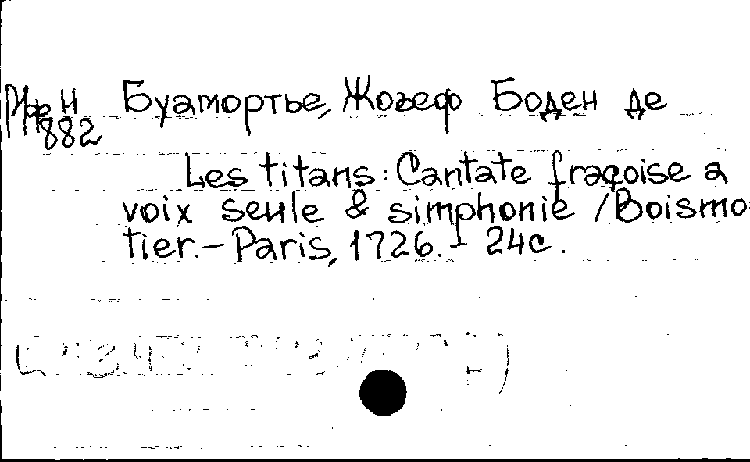 Буамортье, Жозеф Боден де
882
Les titans: Cantate fraçoise a
voix seule & simphonie / Boismo
tier. – Paris, 1726. – 24с.